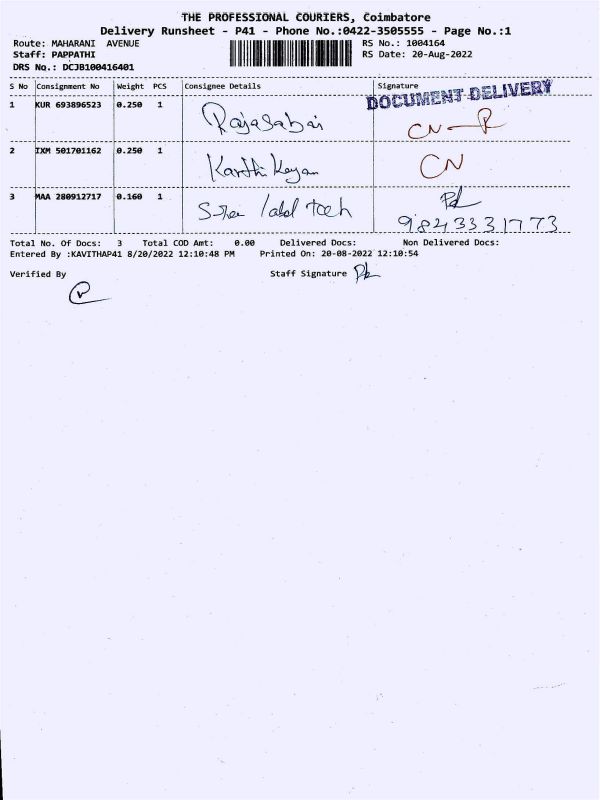 THE PROFESSIONAL COURIERS, Coimbatore
Delivery Runsheet - P41 - Phone No.:0422-3505555 - Page No.:1
Route: MAHARANI AVENUE
RS No.: 1004164
Staff: PAPPATHI
RS Date: 20-Aug-2022
DRS No.: DCJB100416401
S No Consignment No Weight PCS Consignee Details Signature
DOCUMENT DELIVERY
1 KUR 693896523 0.250 1 Rajasabai CN-R
2 IXM 501701162 0.250 1 Karthikeyan CN
3 MAA 280912717 0.160 1 Sree label tech
9843331773
Total No. Of Docs: 3 Total COD Amt: 0.00 Delivered Docs: Non Delivered Docs:
Entered By :KAVITHAP41 8/20/2022 12:10:48 PM Printed On: 20-08-2022 12:10:54
Verified By Staff Signature